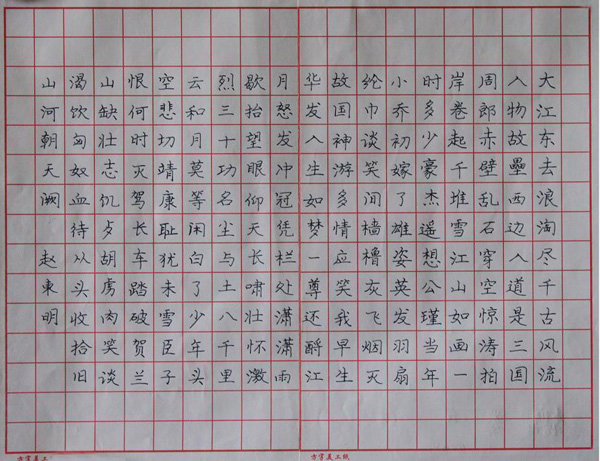 大江东去浪淘尽千古风流
人物故壘西边人道是三国
周郎赤壁乱石穿空惊涛拍
岸卷起千堆雪江山如画一
时多少豪杰遥想公瑾当年
小乔初嫁了雄姿英发羽扇
纶巾谈笑间樯橹灰飞烟灭
故国神游多情应笑我早生
华发人生如梦一尊还爵江
月怒发冲冠凭栏处潇潇雨
歇抬望眼仰天长啸壮怀激
烈三十功名尘与土八千里
云和月莫等闲白了少年头
空悲切靖康耻犹未雪臣子
恨何时灭驾长车踏破贺兰
山缺壮志饥歺胡虏肉笑谈
渴饮匈奴血待从头收拾旧
山河朝天阙 赵東明